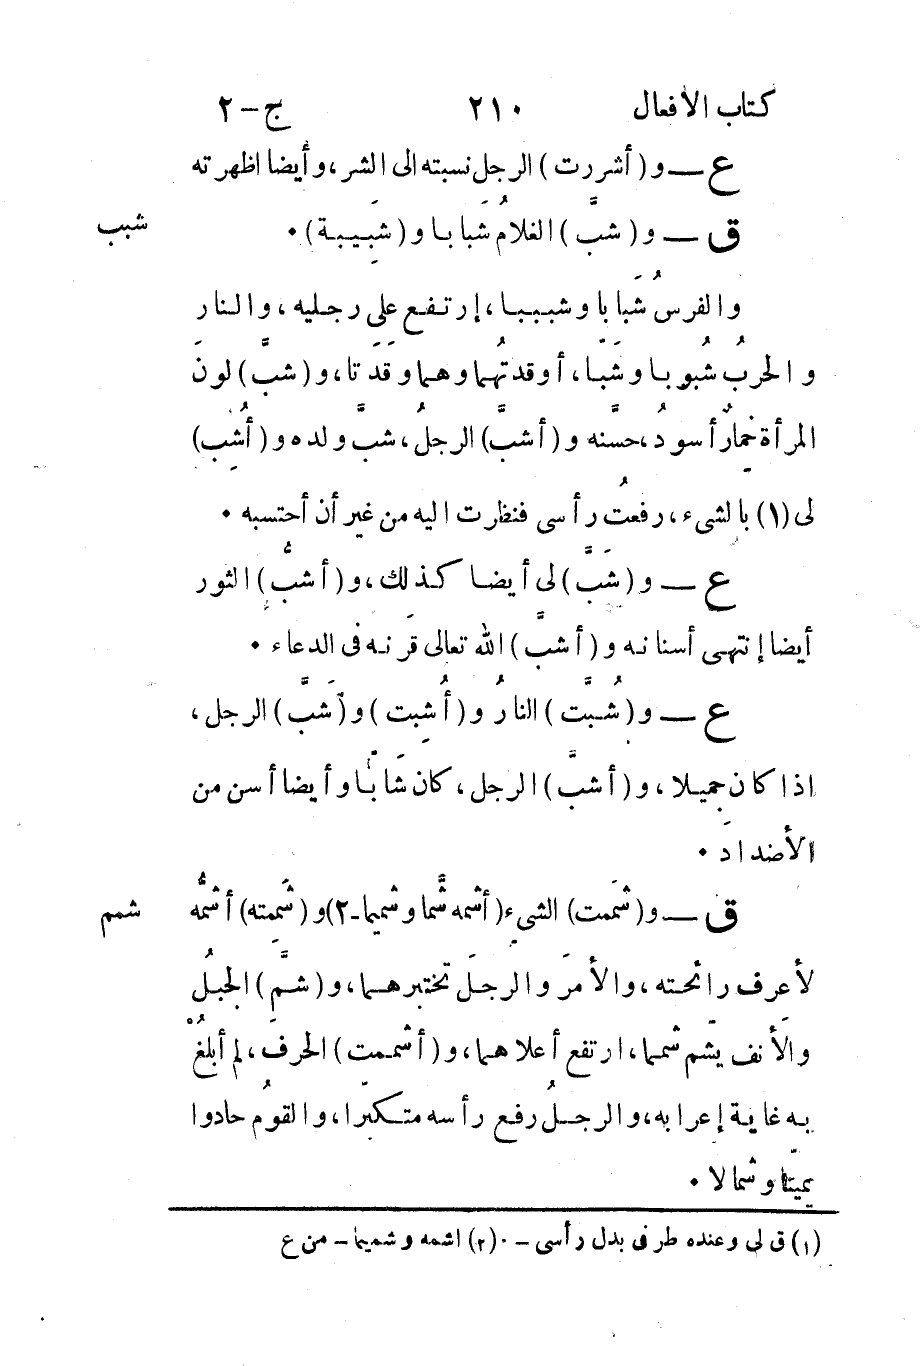 كتاب الأفعال ٢١٠ ج - ٢
ع — و (أشررت) الرجل نسبته الى الشر، وأيضا اظهرته
شبب
ق — و (شبَّ) الغلامُ شَبابا و (شَبِيبة) •
والفرسُ شَبابا وشبيبا، إرتفع على رجليه، والنارَ
والحربُ شُبُوبا وشَبّا، أوقدتُهما وهما وَقَدَتا، و (شبَّ) لونَ
المرأة خِمارٌ أسودُ، حسَّنه و (أشبَّ) الرجلُ، شبَّ ولده و (أُشِبُ)
لى (١) بالشىء، رفعتُ رأسى فنظرت اليه من غير أن أحتسبه •
ع — و (شَبَّ) لى أيضا كذلك، و (أشبُّ) الثور
أيضا إنتهى أسنانه و (أشبَّ) الله تعالى قَرنه فى الدعاء •
ع — و (شُبَّت) النارُ و (أُشِبت) و (شَبَّ) الرجل،
اذا كان جميلا، و (أشبَّ) الرجل، كان شَابًّا وأيضا أسن من
الأضداد •
شمم
ق — و (شمَمت) الشىء (أشمه شمًّا وشميما-٢) و (شَمِمته) أشمُّه
لأعرف رائحته، والأمرَ والرجلَ تختبرهما، و (شمَّ) الجبلُ
والأنف يشَم شمما، ارتفع أعلاهما، و (أشممت) الحرفَ، لم أبلغْ
به غاية إعرابه، والرجلُ رفع رأسه متكبّرا، والقومُ حادوا
يمينًا وشمالا •
(١) ق لى وعنده طرفى بدل رأسى - ٠ (٢) اشمه وشميما - من ع